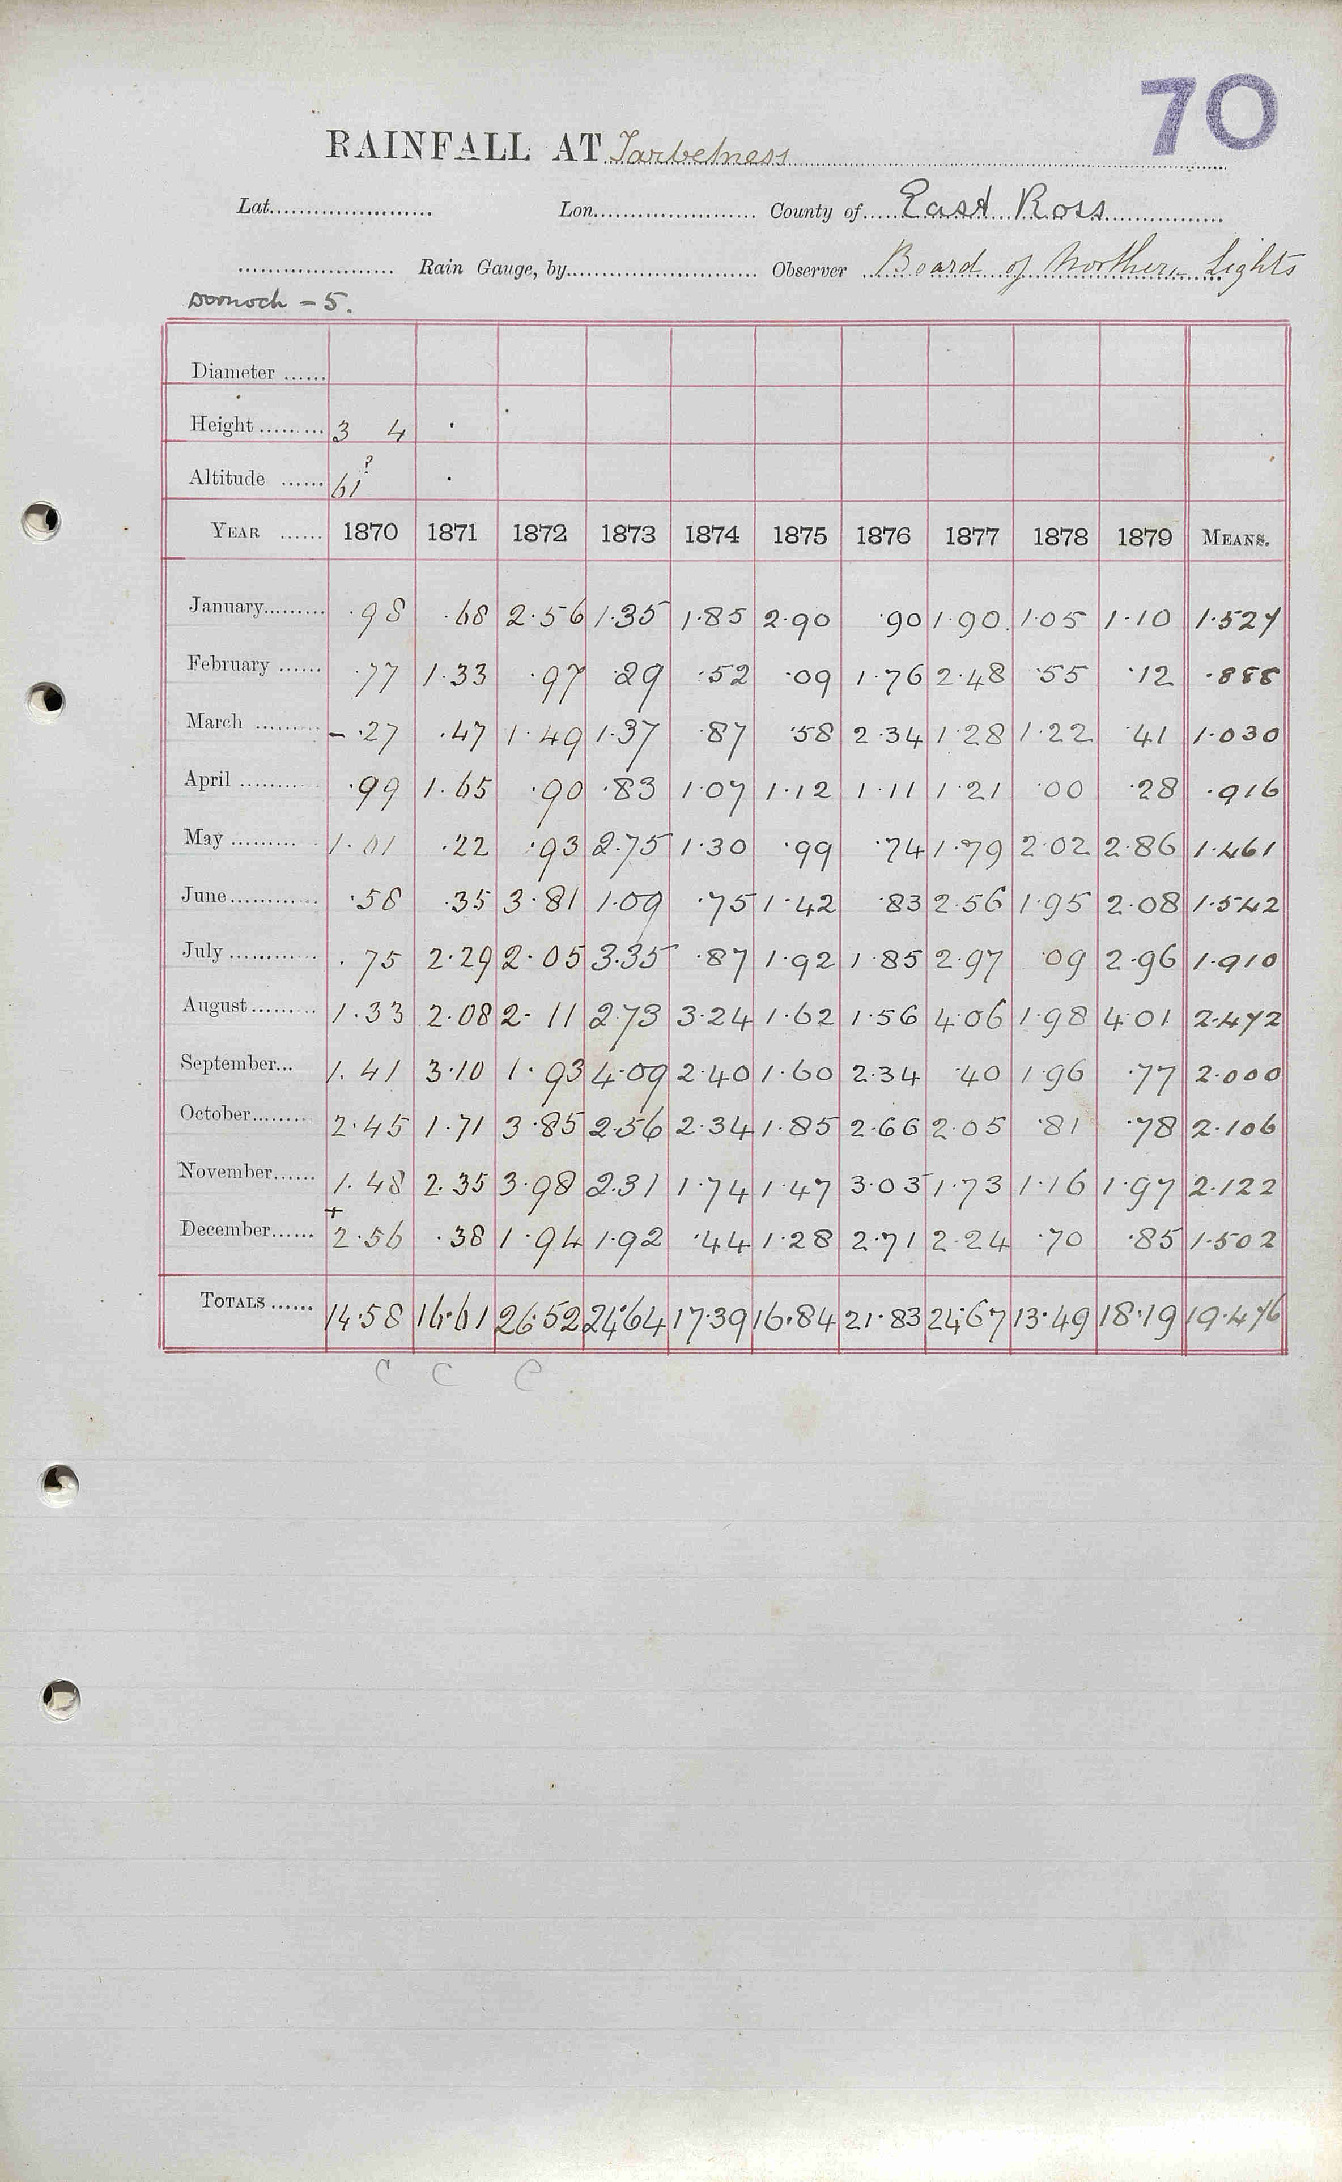 70
RAINFALL AT Tarbetness
Lat. Lon. County of East Ross
Rain Gauge, by Observer Board of Northern Lights
Dornoch - 5.
Diameter
Height 3 4
Altitude 61 ?
YEAR 1870 1871 1872 1873 1874 1875 1876 1877 1878 1879 MEANS.
January ·98 ·68 2·56 1·35 1·85 2·90 ·90 1·90 1·05 1·10 1·527
February ·77 1·33 ·97 ·29 ·52 ·09 1·76 2·48 ·55 ·12 ·888
March - ·27 ·47 1·49 1·37 ·87 ·58 2·34 1·28 1·22 ·41 1·030
April ·99 1·65 ·90 ·83 1·07 1·12 1·11 1·21 ·00 ·28 ·916
May 1·01 ·22 ·93 2·75 1·30 ·99 ·74 1·79 2·02 2·86 1·461
June ·58 ·35 3·81 1·09 ·75 1·42 ·83 2·56 1·95 2·08 1·542
July ·75 2·29 2·05 3·35 ·87 1·92 1·85 2·97 ·09 2·96 1·910
August 1·33 2·08 2·11 2·73 3·24 1·62 1·56 4·06 1·98 4·01 2·472
September... 1·41 3·10 1·93 4·09 2·40 1·60 2·34 ·40 1·96 ·77 2·000
October 2·45 1·71 3·85 2·56 2·34 1·85 2·66 2·05 ·81 ·78 2·106
November 1·48 2·35 3·98 2·31 1·74 1·47 3·03 1·73 1·16 1·97 2·122
December + 2·56 ·38 1·94 1·92 ·44 1·28 2·71 2·24 ·70 ·85 1·502
TOTALS 14·58 16·61 26·52 24·64 17·39 16·84 21·83 24·67 13·49 18·19 19·476
C C C